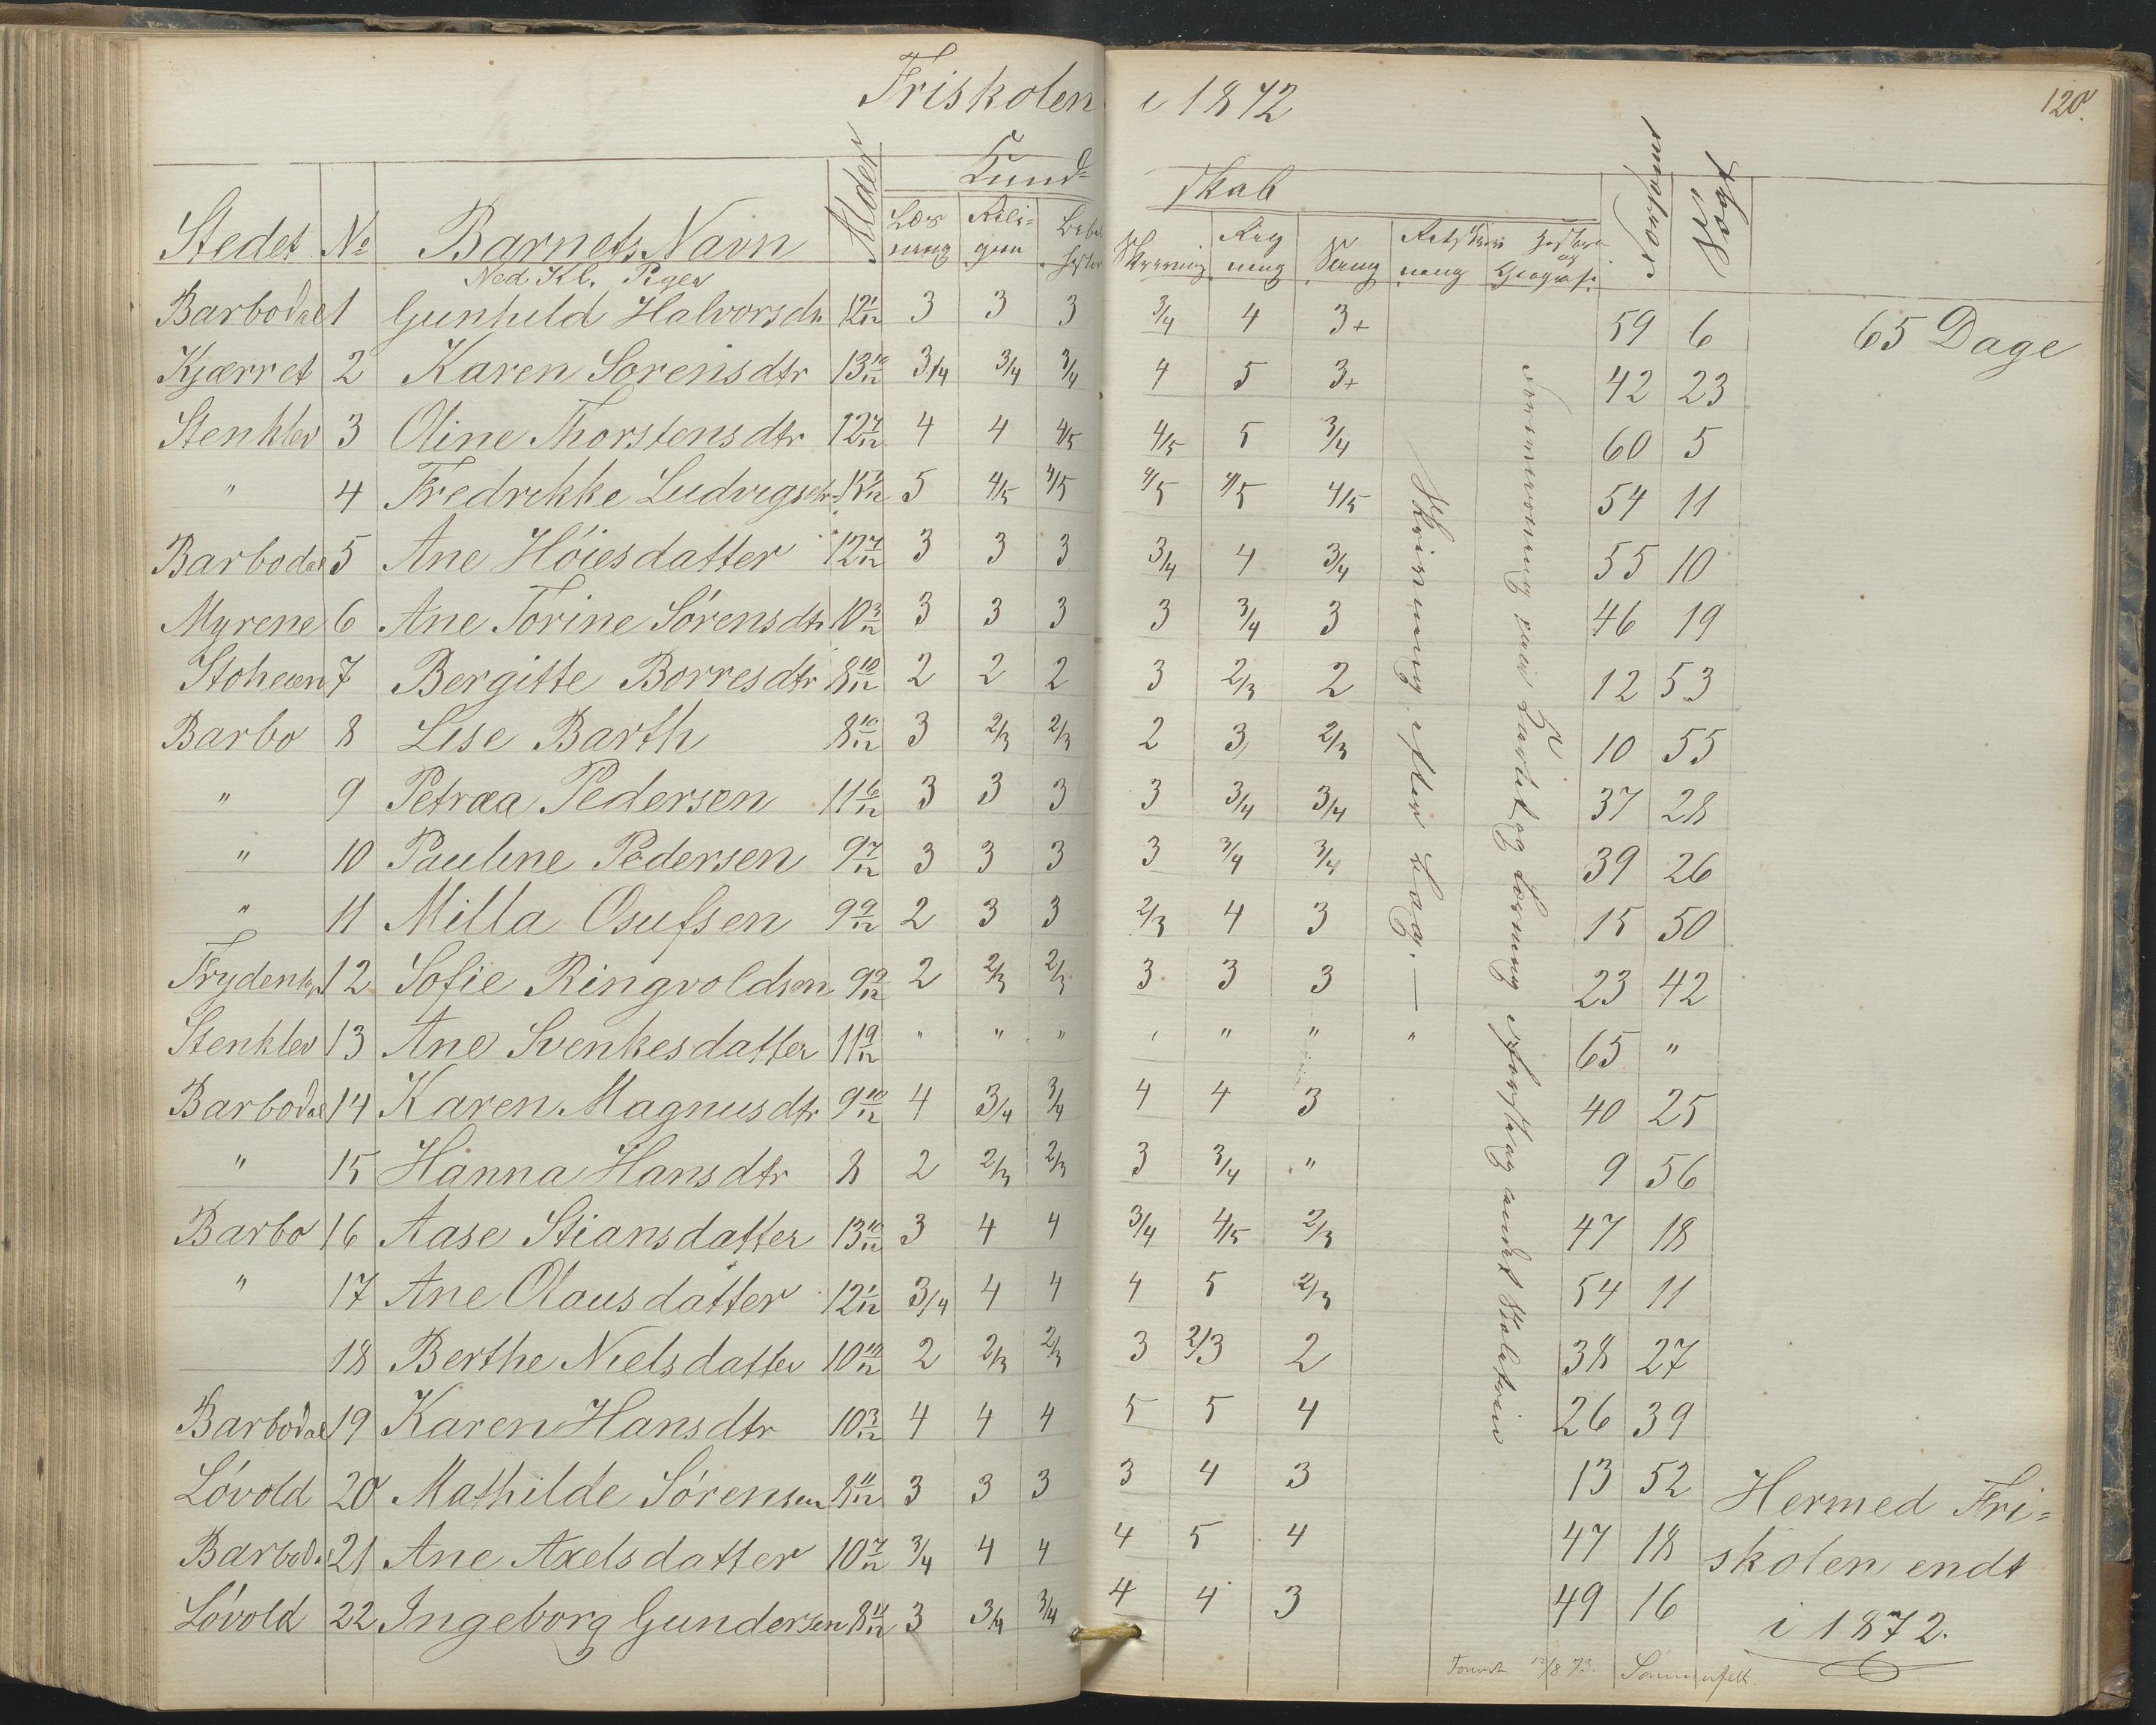 Friskolen i 1872
120.
Kund= skab
Stedet No Barnets Navn Alder Læs ning Reli= gion Skrivning Reg ning Sang Retskriv ning Historie og Geografi forsømt Sögt
Ned. Kl. Piger
Barbodal 1 Gunhild Halvorsdtr 12 1/12 3 3 3 3/4 4 3+ 59 6 65 Dage
Kjærret 2 Karen Sorensdtr 13 10/12 3/4 3/4 3/4 4 5 3+ 42 23
Stenklev 3 Oline Thorstensdtr 12 7/12 4 4 4/5 4/5 5 3/4 60 5
" 4 Fredrikke Ludvigsdtr 5 4/5 4/5 4/5 4/5 4/5 54 11
Barbodal 5 Ane Hóiesdatter 12 7/12 3 3 3 3/4 4 3/4 55 10
Myrene 6 Ane Torine Sórensdtr 10 3/12 3 3 3 3 3/4 3 46 19
7 Bergitte Borresdtr 8 10/12 2 2 2 3 2/3 2 12 53
Barbo 8 Lise Barth 8 10/12 3 2/3 2/3 2 3 2/3 10 55
" 9 Petræa Pedersen 11 6/12 3 3 3 3 3/4 3/4 37 28
" 10 Pauline Pedersen 9 7/12 3 3 3 3 3/4 3/4 39 26
" 11 Milla Osufsen 9 9/12 2 3 3 2/3 4 3 15 50
12 Sofie Ringvoldsen 9 9/12 2 2/3 2/3 3 3 3 23 42
Stenklev 13 Ane Svenkesdatter 11 9/12 " " " " " " " 65 "
Barbodal 14 Karen Magnusdtr 9 10/12 4 3/4 3/4 4 4 3 40 25
" 15 Hanna Hansdtr 8 2 2/3 2/3 3 3/4 " 9 56
Barbo 16 Aase Stiansdatter 13 10/12 3 4 4 3/4 4/5 2/3 47 18
" 17 Ane Olausdatter 12 1/12 3/4 4 4 4 5 2/3 54 11
18 Berthe Nielsdatter 10 10/12 2 2/3 2/3 3 2/3 2 38 27
Barbodal 19 Karen Hansdtr 10 3/12 4 4 4 5 5 4 26 39
Lóvold 20 Mathilde Sórensen 8 11/12 3 3 3 3 4 3 13 52
Barbodal 21 Ane Axelsdatter 10 7/12 3/4 4 4 4 5 4 47 18
Lóvold 22 Ingeborg Gundersen 8 11/12 3 3/4 3/4 4 4 3 49 16
Skrivning efter Bog. —
og Læsning
Hermed Fri=
skolen endt
i 1872.
12/8 73. Sommerfelt.